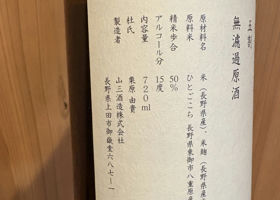 無濾過原酒
原材料名 米（長野県産）、米麹（長野県産
原料米 ひとごこち 長野県東御市八重原産
精米歩合 50%
アルコール分 15度
内容量 720ml
杜氏 栗原由貴
製造者 山三酒造株式会社
長野県上田市御嶽堂六八七ー一